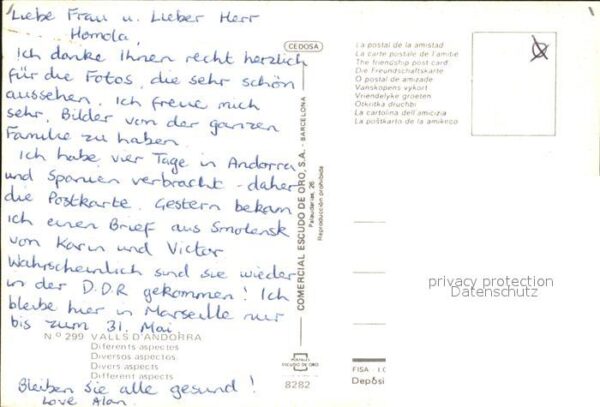 Liebe Frau u. Lieber Herr
Homola,
Ich danke Ihnen recht herzlich
für die Fotos, die sehr schön
aussehen. Ich freue mich
sehr, Bilder von der ganzen
Familie zu haben.
Ich habe vier Tage in Andorra
und Spanien verbracht - daher
die Postkarte. Gestern bekam
ich einen Brief aus Smolensk
von Karin und Victor
Wahrscheinlich sind sie wieder
in der D.D.R gekommen! Ich
bleibe hier in Marseille nur
bis zum 31. Mai.
N.º 299 VALLS D'ANDORRA
Diferents aspectes
Diversos aspectos
Divers aspects
Different aspects
Bleiben Sie alle gesund!
Love Alan.
CEDOSA
COMERCIAL ESCUDO DE ORO, S.A. - BARCELONA
Palaudarias, 26
Reproducción prohibida
POSTALES
ESCUDO DE ORO
8282
La postal de la amistad
La carte postale de l'amitié
The friendship post card
Die Freundschaftskarte
O postal de amizade
Vanskopens vykort
Vriendelyke groeten
Otkritka druchbi
La cartolina dell'amicizia
La poŝtkarto de la amikeco
privacy protection
Datenschutz
FISA
Depósi